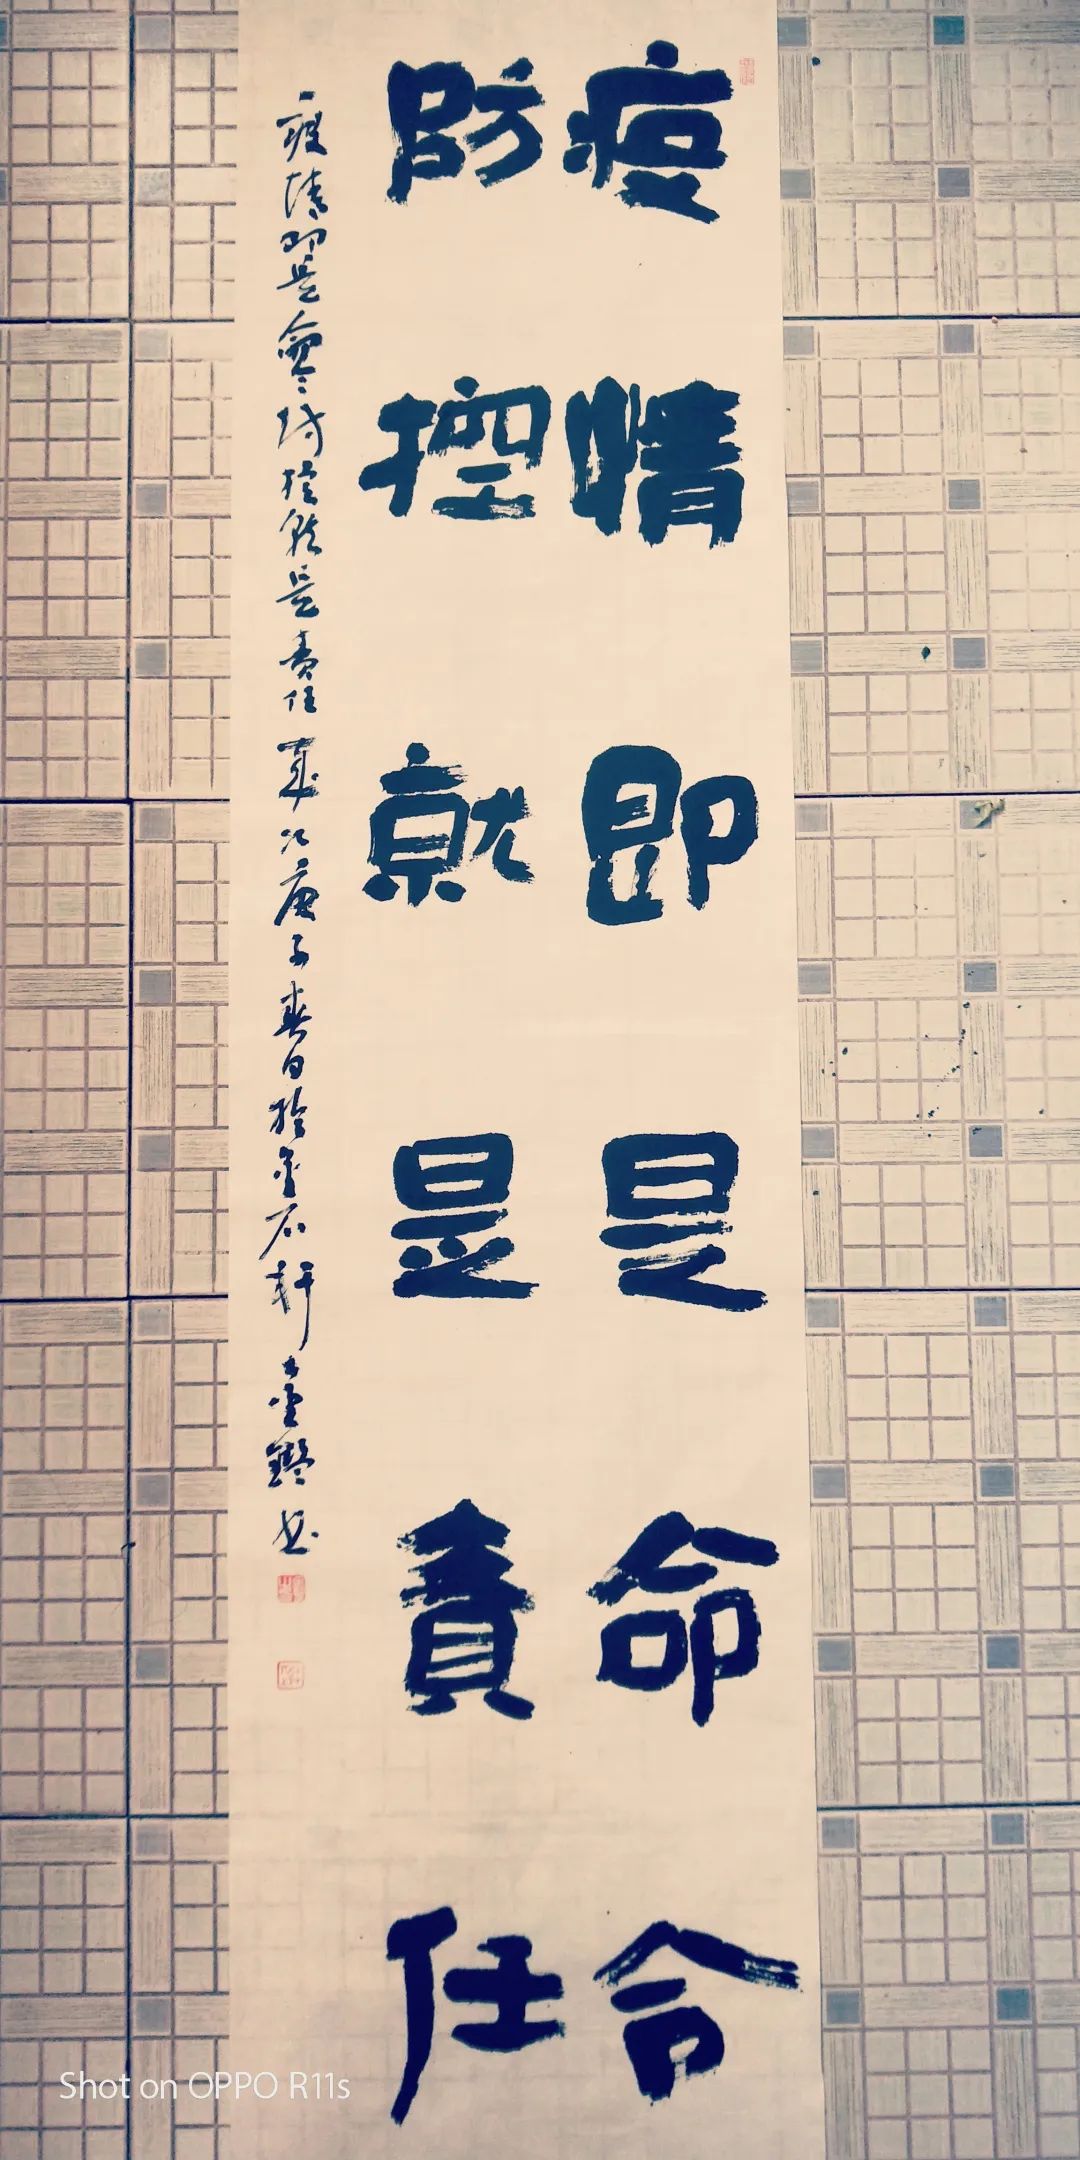 疫情即是命令
防控就是責任
疫情即是命令防控就是責任 歲次庚子春日於金石軒 金鑑書
Shot on OPPO R11s